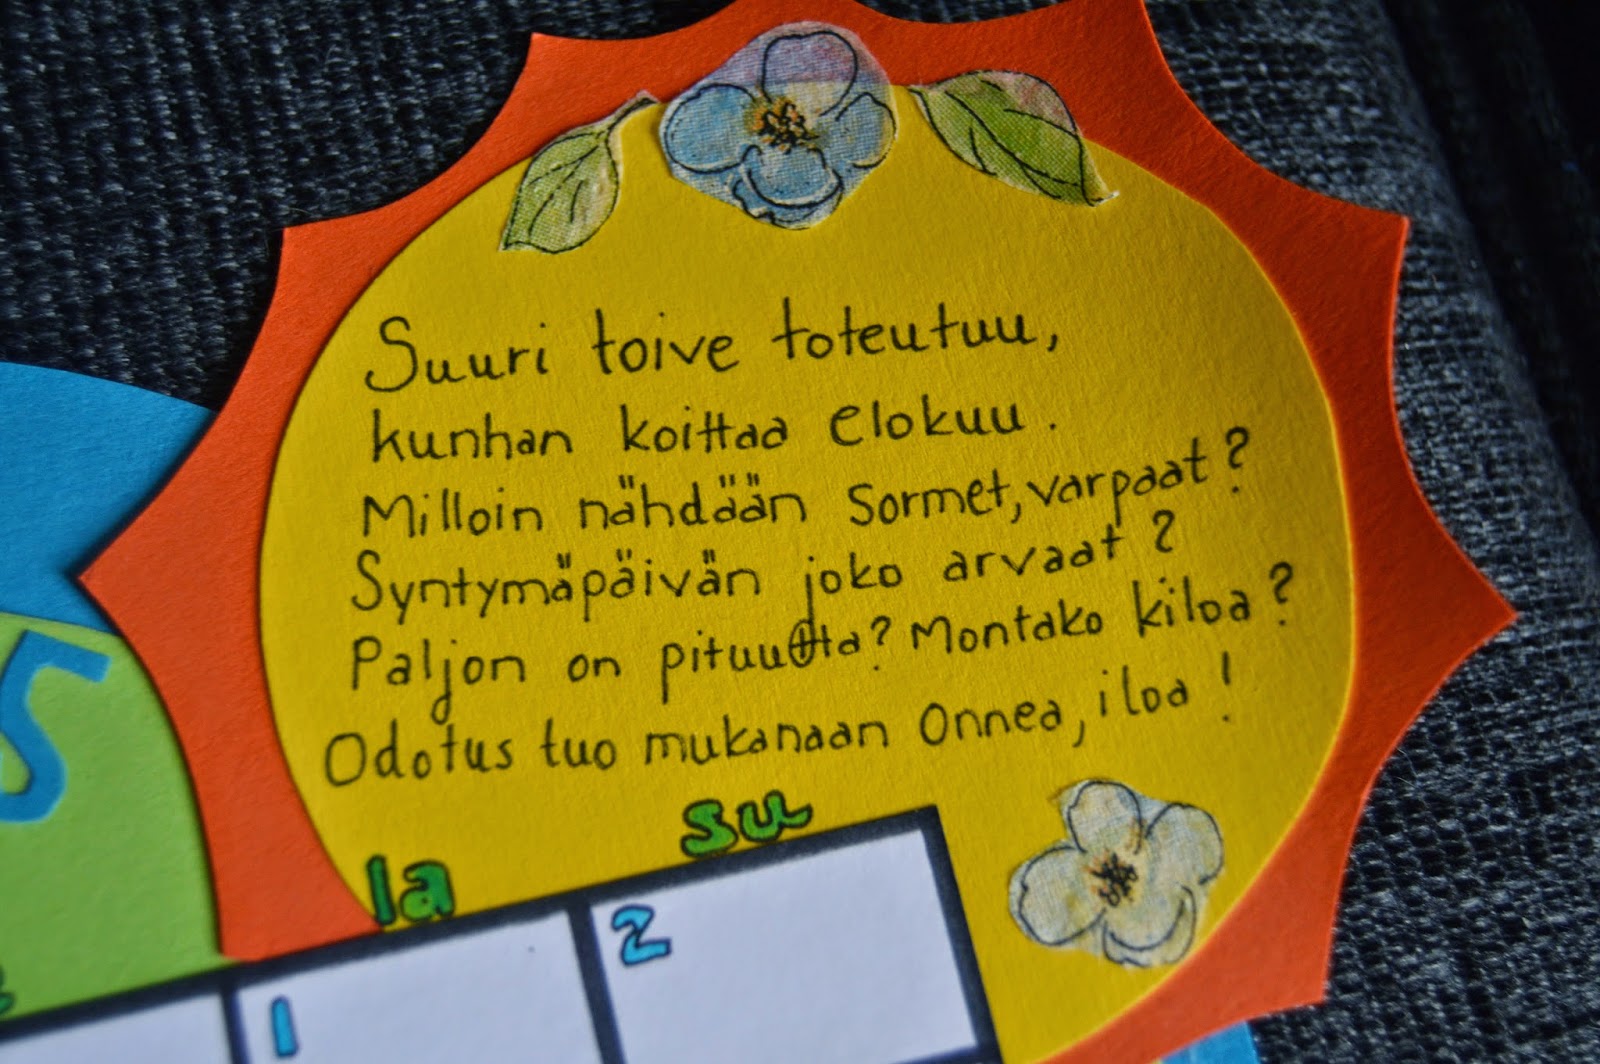 Suuri toive toteutuu,
kunhan koittaa elokuu.
Milloin nähdään sormet, varpaat?
Syntymäpäivän joko arvaat?
Paljon on pituutta? Montako kiloa?
Odotus tuo mukanaan onnea, iloa!
la su
1 2
5